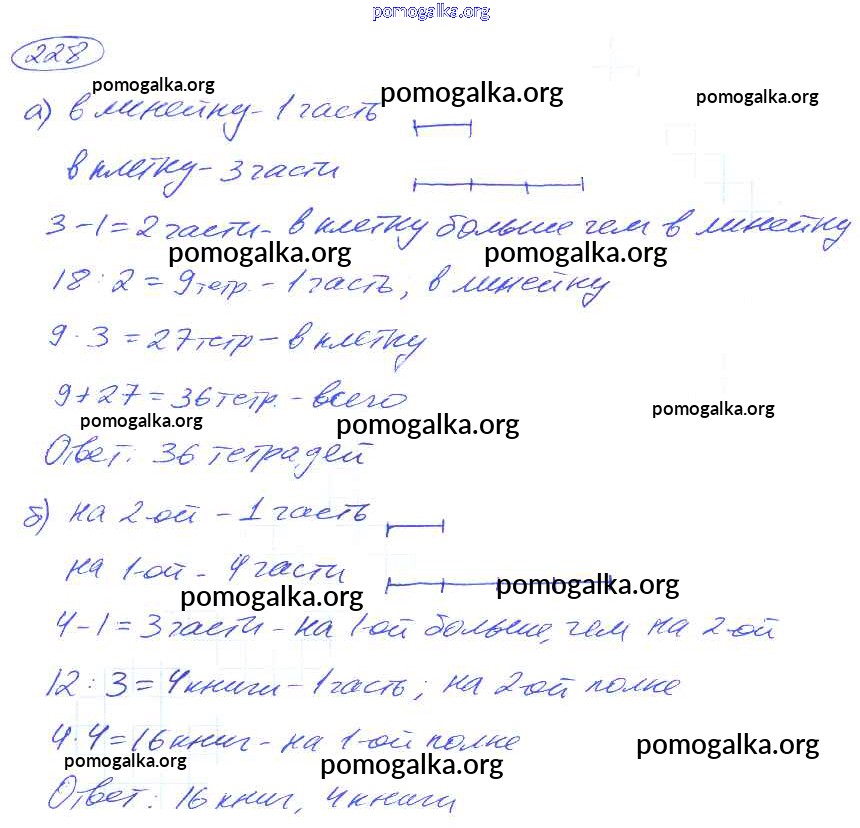 pomogalka.org
228
pomogalka.org pomogalka.org pomogalka.org
а) в линейку - 1 часть
в клетку - 3 части
3 - 1 = 2 части - в клетку больше чем в линейку
pomogalka.org pomogalka.org
18 : 2 = 9 тетр. - 1 часть; в линейку
9 · 3 = 27 тетр - в клетку
9 + 27 = 36 тетр. - всего
pomogalka.org pomogalka.org pomogalka.org
Ответ: 36 тетрадей
б) на 2-ой - 1 часть
на 1-ой - 4 части
pomogalka.org pomogalka.org
4 - 1 = 3 части - на 1-ой больше, чем на 2-ой
12 : 3 = 4 книги - 1 часть; на 2-ой полке
4 · 4 = 16 книг - на 1-ой полке
pomogalka.org pomogalka.org pomogalka.org
Ответ: 16 книг, 4 книги